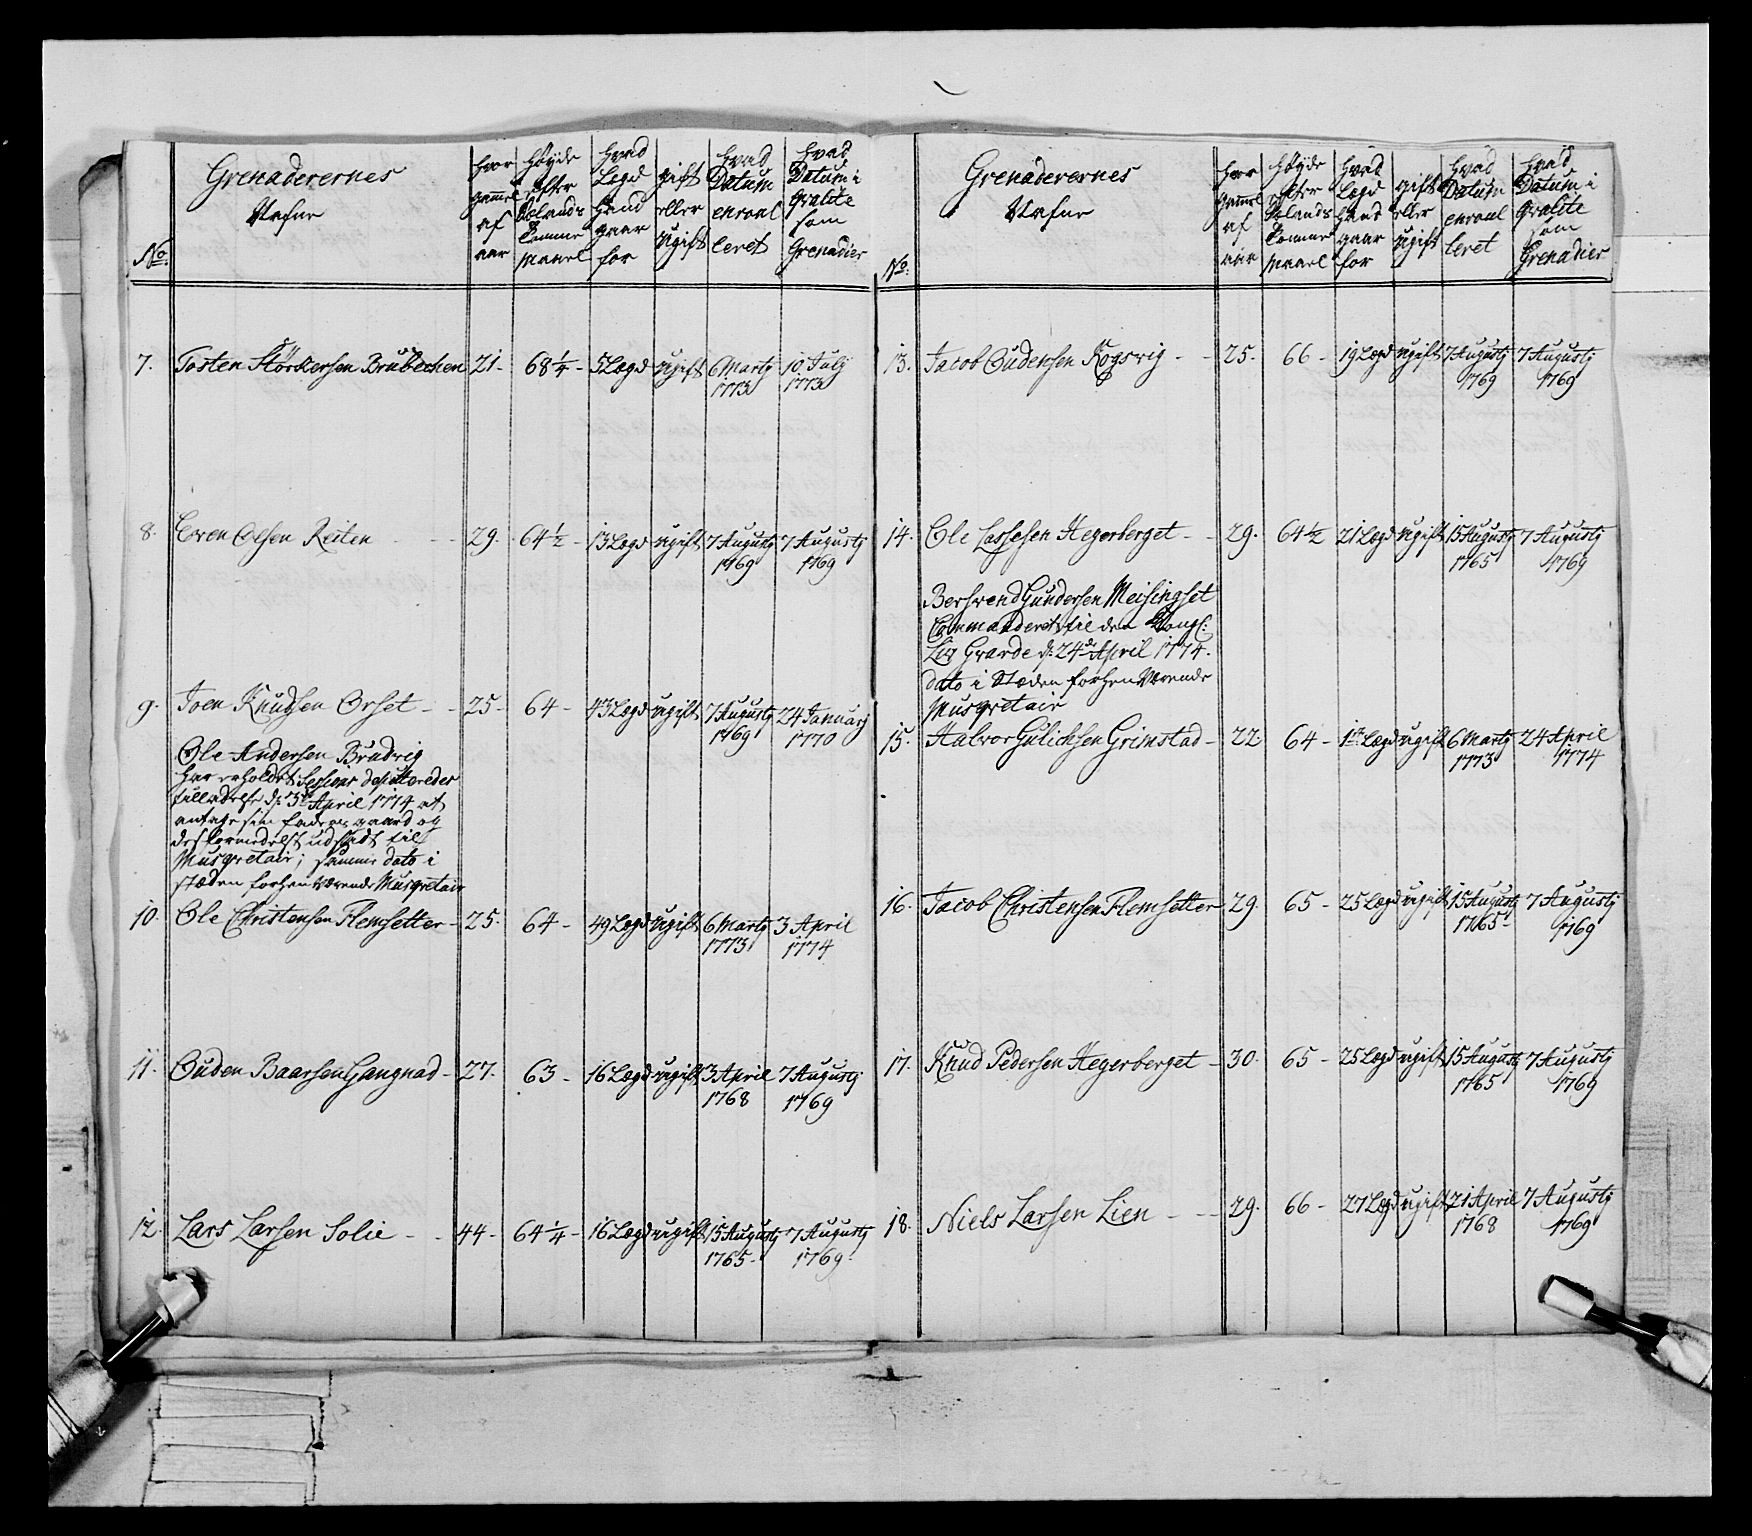 No:
Grenaderernes
Nafne
hvor gamel af aar
Høyde efter Sælands Tomme Maael
hvad Lægd hand gaar for
gift eller ugift
hvad Datum enroulleret
hvad Datum i Qvalite som Grenadier
7. Tosten Störchersen Brubechen 21. 68 1/4 - 5 Lægd ugift 6 Marty 10 July
1773 1773
8. Even Olsen Reiten - - 29. 64 1/2 - 13 Lægd ugift 7 Augusty 7 Augusty
1769 1769
9. Joen Knudsen Orset - - 25 - 64 - 43 Lægd ugift 7 Augusty 24 January
1769 1770
Ole Andersen Brudvig
har erholdet Sessions deputteredes
tilladelse d: 3de April 1774 at
antage sin faders gaard og
desformedelst udskudt til
Musqvetair; samme dato i
stæden forhenværende Musqvetair
10. Ole Christensen Flemsetter - 25. 64 - 49 Lægd ugift 6 Marty 3 April
1773 1774
11. Ouden Baarsen Gangnad - 27. 63 - 16 Lægd ugift 3 April 7 Augusty
1768 1769
12. Lars Larsen Solie - - 44 - 64 1/4 - 16 Lægd ugift 15 Augusty 7 Augusty
1765 - 1769 -
No:
Grenaderernes
Nafne
hvor gamel af aar
Høyde efter Sælands Tomme Maael
hvad Lægd hand gaar for
gift eller ugift
hvad Datum enroulleret
hvad Datum i Qvalite som Grenadier
13. Jacob Oudensen Kogsvig - - 25. 66 - 19 Lægd ugift 7 Augusty 7 Augusty
1769 1769
14. Ole Lassesen Hegerberget - - 29. 64 1/2 21 Lægd ugift 15 Augusty 7 Augusty
1765 1769
Gundersen Meisingset
Commanderet til den Kongl:
Liv Gvarde d: 24de April 1774.
dato i Stæden forhenværende
Musqvetair
15. Halvor Gulichsen Grimstad - 22 64 - 1te Lægd ugift 6 Marty 24 April
1773 1774
16. Jacob Christensen Flemsetter 29. 65 - 25 Lægd ugift 15 Augusty 7 Augusty
1765 - 1769
17. Knud Pedersen Hegerberget - 30. 65 - 25 Lægd ugift 15 Augusty 7 Augusty
1765 1769
18. Niels Larsen Lien - - - 29. 66 - 27 Lægd ugift 21 April 7 Augusty
1768 1769